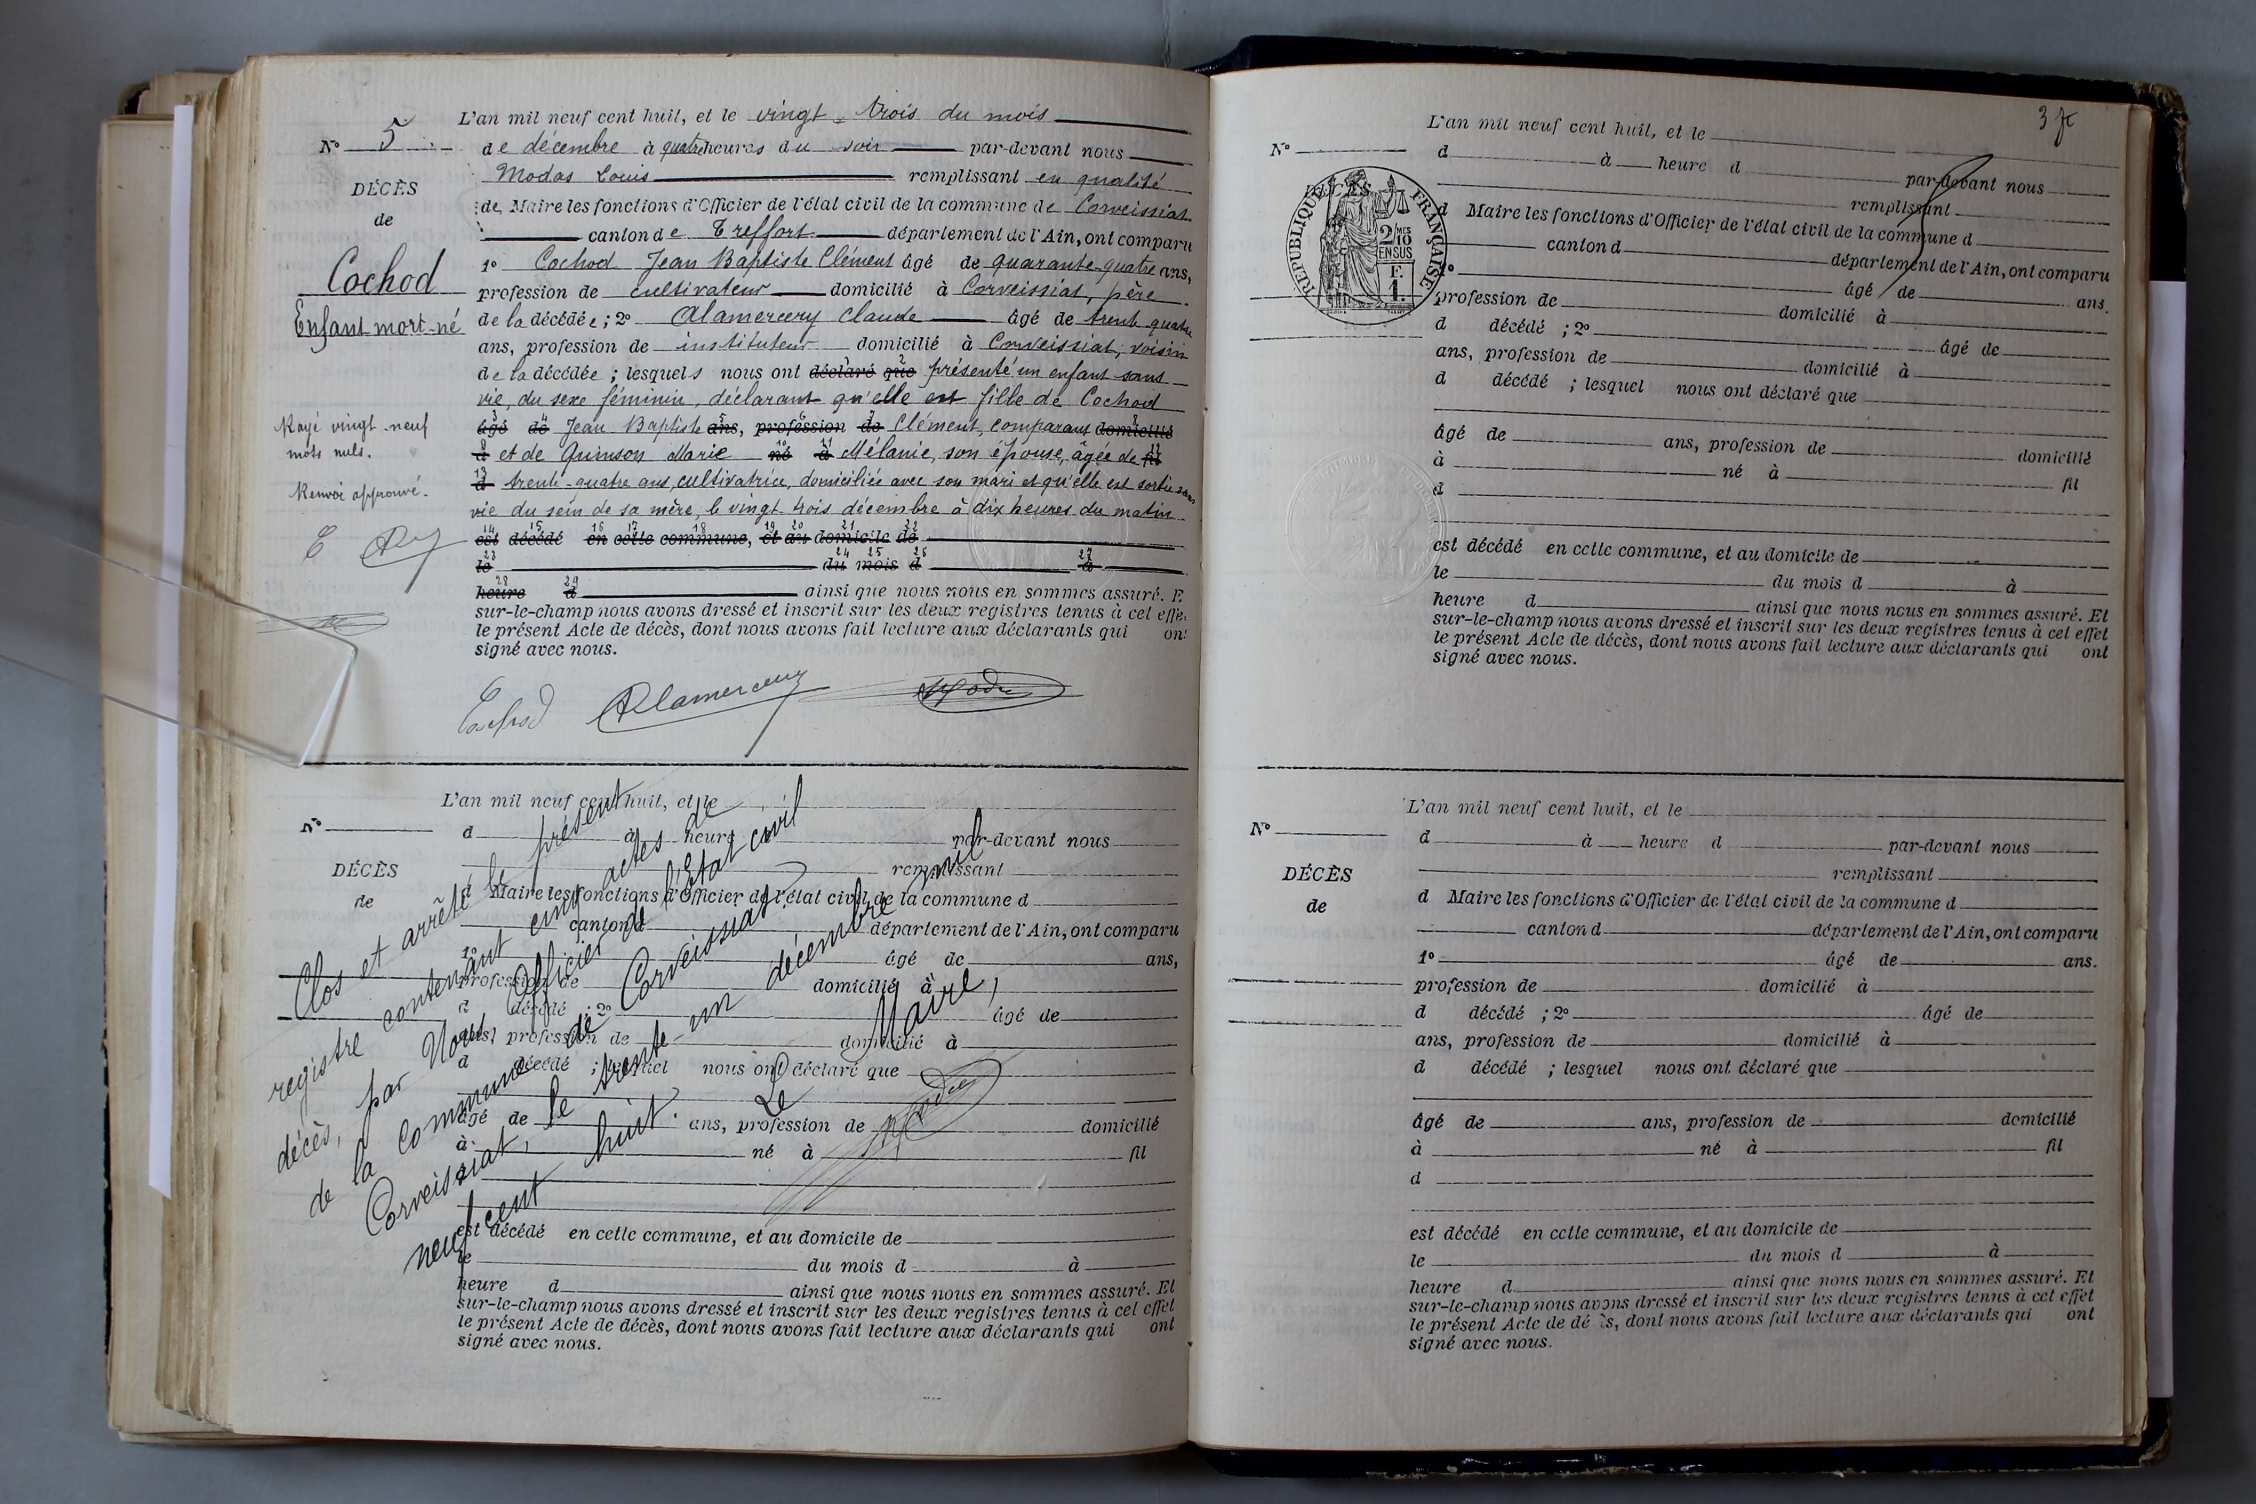 L'an mil neuf cent huit, et le vingt-trois du mois
N° 5
de décembre à quatre heures du soir par-devant nous
DÉCÈS
Modas Louis remplissant en qualité
de Maire les fonctions d'Officier de l'état civil de la commune de Corveissiat
de
canton de Treffort département de l'Ain, ont comparu
Cochod
1° Cochod Jean Baptiste Clément âgé de quarante-quatre ans,
profession de cultivateur domicilié à Corveissiat, père
Enfant mort-né
de la décédée ; 2° Alamercery Claude âgé de trente quatre
ans, profession de instituteur domicilié à Corveissiat, voisin
de la décédée ; lesquels nous ont déclaré que présenté un enfant sans
vie, du sexe féminin, déclarant qu'elle est fille de Cochod
Rayé vingt-neuf
mots nuls.
âgé de Jean Baptiste ans, profession de Clément, comparant domicilié
à et de Guinson Marie né à Mélanie, son épouse, âgée de fil
d trente-quatre ans, cultivatrice, domiciliée avec son mari et qu'elle est sortie sans
Renvoi approuvé.
vie du sein de sa mère, le vingt-trois décembre à dix heures du matin
14 15 16 17 18 19 20 21 22
est décédé en cette commune, et au domicile de
23 24 25 26 27
le du mois d à
28 29
heure d ainsi que nous nous en sommes assuré. E
sur-le-champ nous avons dressé et inscrit sur les deux registres tenus à cet effe
le présent Acte de décès, dont nous avons fait lecture aux déclarants qui ont
signé avec nous.
Cochod Alamercery Modas
L'an mil neuf cent huit, et le
N°
d à heure par-devant nous
DÉCÈS
remplissant
de
d Maire les fonctions d'Officier de l'état civil de la commune d
canton d département de l'Ain, ont comparu
1° âgé de ans,
profession de domicilié à
d décédé ; 2° âgé de
ans, profession de domicilié à
d décédé ; lesquel nous ont déclaré que
âgé de ans, profession de domicilié
à né à fil
d
est décédé en cette commune, et au domicile de
le du mois d à
heure d ainsi que nous nous en sommes assuré. Et
sur-le-champ nous avons dressé et inscrit sur les deux registres tenus à cet effet
le présent Acte de décès, dont nous avons fait lecture aux déclarants qui ont
signé avec nous.
Clos et arrêté le présent
registre contenant cinq actes de
décès, par Nous Officier de l'Etat civil
de la commune de Corveissiat.
Corveissiat, le trente-un décembre mil
neuf cent huit.
Le Maire,
3
L'an mil neuf cent huit, et le
N°
d à heure d par-devant nous
DÉCÈS
RÉPUBLIQUE FRANÇAISE
2/10 MES
EN SUS
F.
1.
remplissant
d Maire les fonctions d'Officier de l'état civil de la commune d
canton d département de l'Ain, ont comparu
1° âgé de ans.
profession de domicilié à
d décédé ; 2° âgé de
ans, profession de domicilié à
d décédé ; lesquel nous ont déclaré que
âgé de ans, profession de domicilié
à né à fil
d
est décédé en cette commune, et au domicile de
le du mois d à
heure d ainsi que nous nous en sommes assuré. Et
sur-le-champ nous avons dressé et inscrit sur les deux registres tenus à cet effet
le présent Acte de décès, dont nous avons fait lecture aux déclarants qui ont
signé avec nous.
L'an mil neuf cent huit, et le
N°
d à heure d par-devant nous
DÉCÈS
remplissant
de
d Maire les fonctions d'Officier de l'état civil de la commune d
canton d département de l'Ain, ont comparu
1° âgé de ans.
profession de domicilié à
d décédé ; 2° âgé de
ans, profession de domicilié à
d décédé ; lesquel nous ont déclaré que
âgé de ans, profession de domicilié
à né à fil
d
est décédé en cette commune, et au domicile de
le du mois d à
heure d ainsi que nous nous en sommes assuré. Et
sur-le-champ nous avons dressé et inscrit sur les deux registres tenus à cet effet
le présent Acte de décès, dont nous avons fait lecture aux déclarants qui ont
signé avec nous.